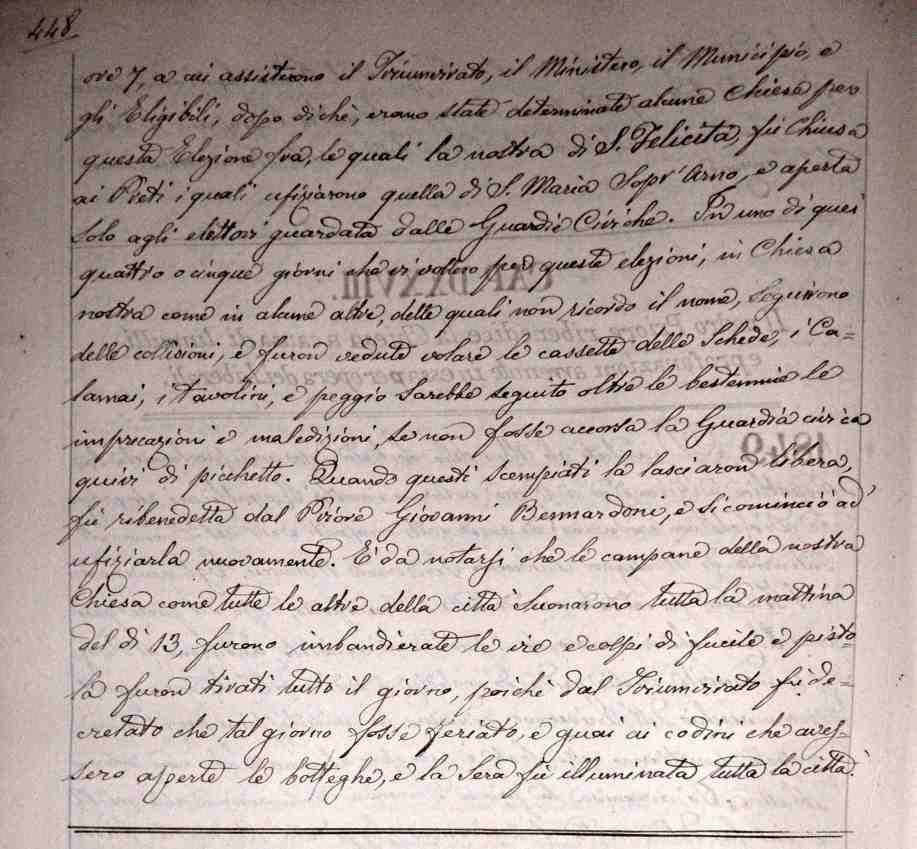 448.
ore 7, a cui assisterono il Triumvirato, il Ministero, il Municipio, e
gli Eligibili, dopo di chè, erano state determinate alcune Chiese per
questa Elezione frà le quali la nostra di S. Felicita, fù Chiusa
ai Preti i quali ufiziarono quella di S. Maria Sopr' Arno, e aperta
solo agli elettori guardata dalle Guardie Civiche. In uno di quei
quattro o cinque giorni che vi vollero per queste elezioni, in Chiesa
nostra come in alcune altre, delle quali non ricordo il nome, seguirono
delle collisioni, e furon vedute volare le cassette delle Schede, i Ca=
lamai, i Tavolini, e peggio sarebbe seguito oltre le bestemmie le
imprecazioni e maledizioni, se non fosse accorsa la Guardia civica
quivi di picchetto. Quando questi scempiati la lasciaron libera,
fù ribenedetta dal Priore Giovanni Bernardoni, e si cominciò ad
ufiziarla nuovamente. È da notarsi che le campane della nostra
Chiesa come tutte le altre della città suonarono tutta la mattina
del dì 13, furono imbandierate le vie e colpi di fucile e pisto=
la furon tirati tutto il giorno, poichè dal Triumvirato fù de=
cretato che tal giorno fosse feriato, e guai ai codini che aves=
sero aperte le botteghe, e la sera fù illuminata tutta la città.